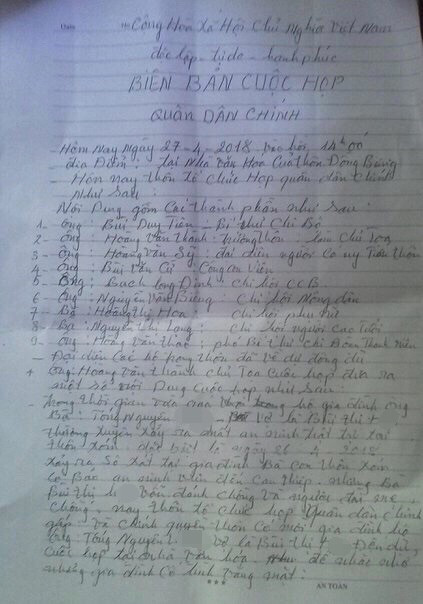 Cộng Hoà Xã Hội Chủ Nghĩa Việt Nam
độc lập - tự do - hạnh phúc
BIÊN BẢN CUỘC HỌP
QUÂN DÂN CHÍNH
Hôm Nay Ngày 27-4-2018 vào hồi 14h00
địa Điểm: tại Nhà văn Hoá của thôn Đồng Bưởng
Hôm nay thôn tổ chức Họp quân dân chính
Như sau
Nội Dung gồm Các thành phần như sau:
1- ông: Bùi Duy Tiên - Bí thư Chi Bộ
2- ông: Hoàng Văn Thành: trưởng thôn. làm Chủ toạ
3- ông: Hoàng Văn Sỹ: đại diện người có uy tín thôn
4- ông: Bùi Văn Cử: Công an viên
5- ông: Bạch Long Định: chi hội CCB
6- ông: Nguyễn Văn Biểng: Chi hội Nông dân
7- Bà: Hoàng Thị Hoa: Chi hội phụ nữ
8- Bà: Nguyễn Thị Long: Chi hội người Cao Tuổi
9- ông: Hoàng Văn Thao: phó Bí thư chi Đoàn Thanh niên
- Đại diện các hộ trong thôn đã về dự đông đủ
+ ông: Hoàng Văn Thành chủ toạ Cuộc họp đưa ra
một số nội Dung cuộc họp như sau:
- trong thời gian vừa qua hộ gia đình ông
Bà: Tống Nguyên vợ là Bùi thị
thường xuyên xảy ra mất an ninh trật tự tại
thôn xóm. đặc biệt là ngày 26-4-2018
xảy ra sô xát tại gia đình Bà con thôn xóm
có Báo an ninh viên đến can thiệp. nhưng bà
Bùi thị vẫn đánh chồng và người tại mẹ
chồng. nay thôn tổ chức họp Quân dân chính
gấp và chính quyền thôn có mời gia đình hộ
ông Tống Nguyên vợ là Bùi thị Đến dự
cuộc họp tại nhà văn hoá. để nhắc nhở
nhưng gia đình cố tình vắng mặt.
***
AN TOÀN